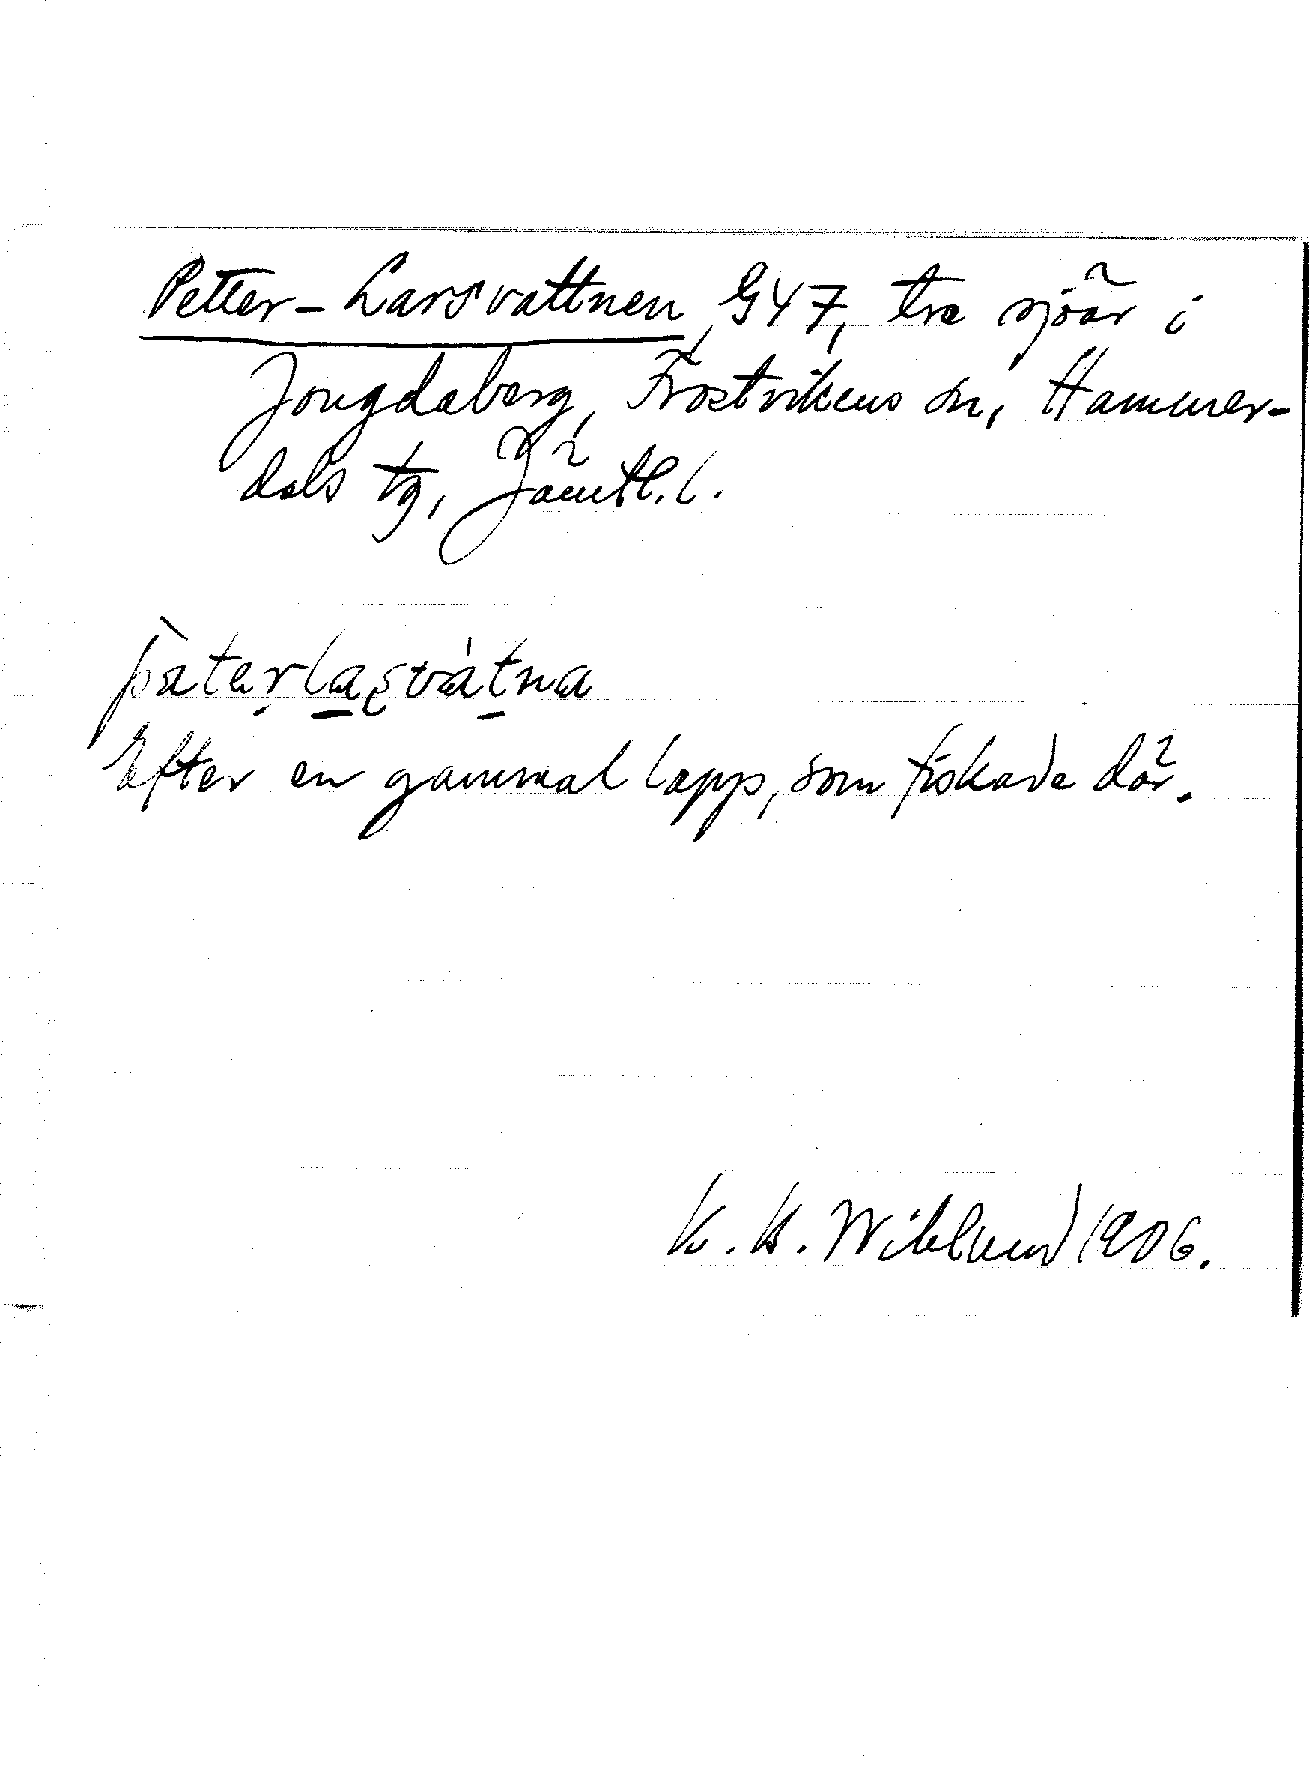 Petter-Larsvattnen, G47, tre sjöar i
Jougdaberg, Frostvikens sn, Hammer-
dals tg, Jämtl. l.
Efter en gammal lapp, som fiskade där.
K. B. Wiklund 1906.